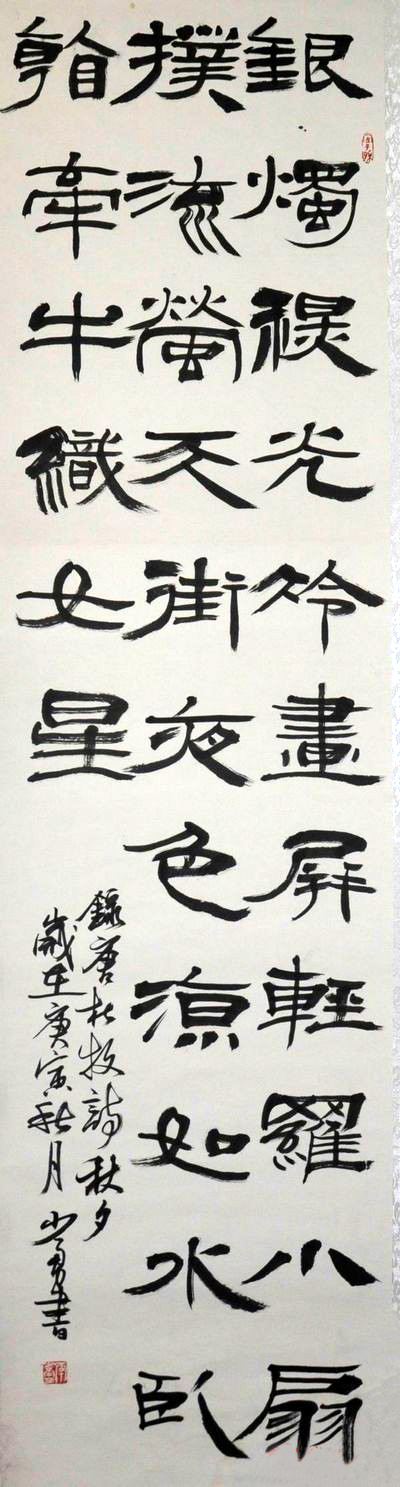 銀燭秋光冷畫屏輕羅小扇
撲流螢天街夜色涼如水臥
看牽牛織女星
錄唐杜牧詩秋夕
歲在庚寅秋月書